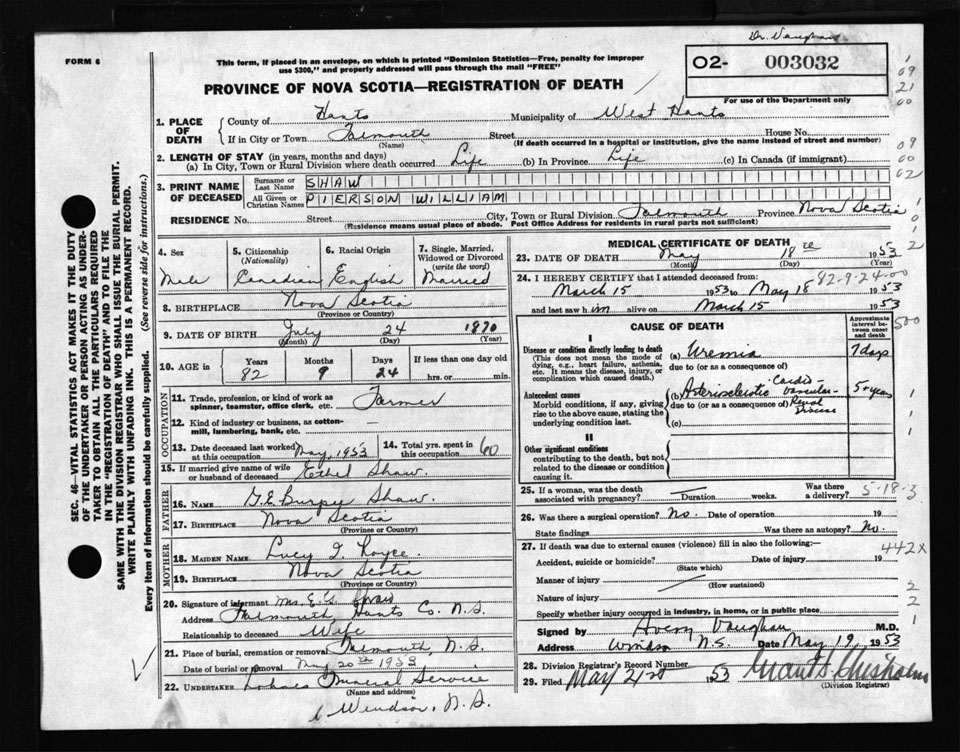 Dr. Vaughan
FORM 6
This form, if placed in an envelope, on which is printed "Dominion Statistics—Free, penalty for improper
use $300," and properly addressed will pass through the mail "FREE"
O2- 003032
For use of the Department only
PROVINCE OF NOVA SCOTIA—REGISTRATION OF DEATH
09
21
00
1. PLACE OF DEATH
County of Hants Municipality of West Hants
If in City or Town Falmouth Street House No.
(Name) (If death occurred in a hospital or institution, give the name instead of street and number)
2. LENGTH OF STAY (in years, months and days)
(a) In City, Town or Rural Division where death occurred Life (b) In Province Life (c) In Canada (if immigrant)
09
00
02
3. PRINT NAME OF DECEASED
Surname or Last Name SHAW
All Given or Christian Names PIERSON WILLIAM
RESIDENCE No. Street City, Town or Rural Division Falmouth Province Nova Scotia
(Residence means usual place of abode. Post Office Address for residents in rural parts not sufficient)
4. Sex
Male
5. Citizenship
(Nationality)
Canadian
6. Racial Origin
English
7. Single, Married, Widowed or Divorced
(write the word)
Married
8. BIRTHPLACE Nova Scotia
(Province or Country)
9. DATE OF BIRTH July 24 1870
(Month) (Day) (Year)
10. AGE in
Years Months Days If less than one day old
82 9 24 hrs. or min.
OCCUPATION
11. Trade, profession, or kind of work as
spinner, teamster, office clerk, etc. Farmer
12. Kind of industry or business, as cotton-
mill, lumbering, bank, etc. —
13. Date deceased last worked
at this occupation May, 1953
14. Total yrs. spent in
this occupation 60
15. If married give name of wife
or husband of deceased Ethel Shaw.
FATHER
16. NAME G. E. Burpee Shaw.
17. BIRTHPLACE Nova Scotia
(Province or Country)
MOTHER
18. MAIDEN NAME Lucy I.
19. BIRTHPLACE Nova Scotia
(Province or Country)
20. Signature of informant Mrs. E. G. Shaw
Address Falmouth Hants Co. N.S.
Relationship to deceased Wife
21. Place of burial, cremation or removal Falmouth, N.S.
Date of burial or removal May 20th 1953
22. UNDERTAKER Funeral Service
(Name and address)
Windsor, N.S.
MEDICAL CERTIFICATE OF DEATH
23. DATE OF DEATH May 18 1953
(Month) (Day) (Year)
82-9-24-00
24. I HEREBY CERTIFY that I attended deceased from:
March 15 1953 to May 18 1953
and last saw him alive on March 15 1953
500
CAUSE OF DEATH
Approximate interval between onset and death
I
Disease or condition directly leading to death
(This does not mean the mode of
dying, e.g., heart failure, asthenia,
etc. It means the disease, injury, or
complication which caused death.)
(a) Uremia 7 days
due to (or as a consequence of)
Antecedent causes
Morbid conditions, if any, giving
rise to the above cause, stating the
underlying condition last.
(b) Arteriosclerotic Cardio vascular- 5 years
due to (or as a consequence of) Renal Disease
(c)
II
Other significant conditions
contributing to the death, but not
related to the disease or condition
causing it.
25. If a woman, was the death
associated with pregnancy? Duration weeks. Was there a delivery?
5-18-3
26. Was there a surgical operation? No. Date of operation 19
State findings Was there an autopsy? No.
27. If death was due to external causes (violence) fill in also the following:—
442X
Accident, suicide or homicide? Date of injury 19
(State which)
Manner of injury
(How sustained)
Nature of injury
Specify whether injury occurred in industry, in home, or in public place
Signed by Avery Vaughan M.D.
Address Windsor N.S. Date May 19 1953
28. Division Registrar's Record Number
29. Filed May 21st 1953 Grant S. Chisholm
(Division Registrar)
SEC. 46—VITAL STATISTICS ACT MAKES IT THE DUTY
OF THE UNDERTAKER OR PERSON ACTING AS UNDER-
TAKER TO OBTAIN ALL THE PARTICULARS REQUIRED
IN THE "REGISTRATION OF DEATH" AND TO FILE THE
SAME WITH THE DIVISION REGISTRAR WHO SHALL ISSUE THE BURIAL PERMIT.
WRITE PLAINLY WITH UNFADING INK. THIS IS A PERMANENT RECORD.
Every item of Information should be carefully supplied. (See reverse side for instructions.)